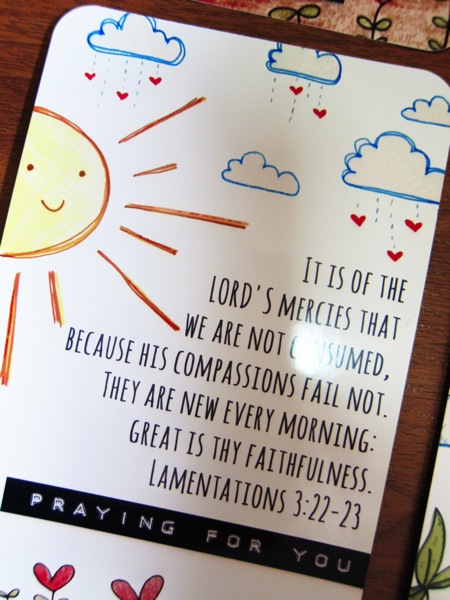 IT IS OF THE
LORD'S MERCIES THAT
WE ARE NOT CONSUMED,
BECAUSE HIS COMPASSIONS FAIL NOT.
THEY ARE NEW EVERY MORNING:
GREAT IS THY FAITHFULNESS.
LAMENTATIONS 3:22-23
PRAYING FOR YOU